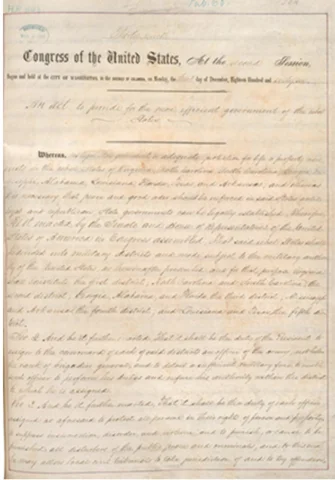 Congress of the United States, At the second Session,
Begun and held at the CITY OF WASHINGTON, in the DISTRICT OF COLUMBIA, on Monday, the third day of December, Eighteen Hundred and sixty-six
An Act to provide for the more efficient government of the rebel
States.
Whereas no legal State governments or adequate protection for life or property now
exists in the rebel States of Virginia, North Carolina, South Carolina, Georgia,
Alabama, Louisiana, Florida, Texas and Arkansas, and whereas
it is necessary that peace and good order should be enforced in said States until
loyal and republican State governments can be legally established. Therefore
Be it enacted by the Senate and House of Representatives of the United
States of America in Congress assembled, That said rebel States shall be
divided into military districts and made subject to the military authority
of the United States as hereinafter prescribed and for that purpose Virginia
shall constitute the first district, North Carolina and South Carolina the
second district, Georgia, Alabama, and Florida the third district, Mississippi
and Arkansas the fourth district, and Louisiana and Texas the fifth dis
trict.
Sec 2. And be it further enacted That it shall be the duty of the President to
assign to the command of each of said districts an officer of the army, not below
the rank of brigadier general, and to detail a sufficient military force to enable
such officer to perform his duties and enforce his authority within the district
to which he is assigned.
Sec 3. And be it further enacted, That it shall be the duty of each officer
assigned as aforesaid to protect all persons in their rights of person and property,
to suppress insurrection, disorder, and violence, and to punish, or cause to be
punished, all disturbers of the public peace and criminals, and to this end
he may allow local civil tribunals to take jurisdiction of and to try offenders,